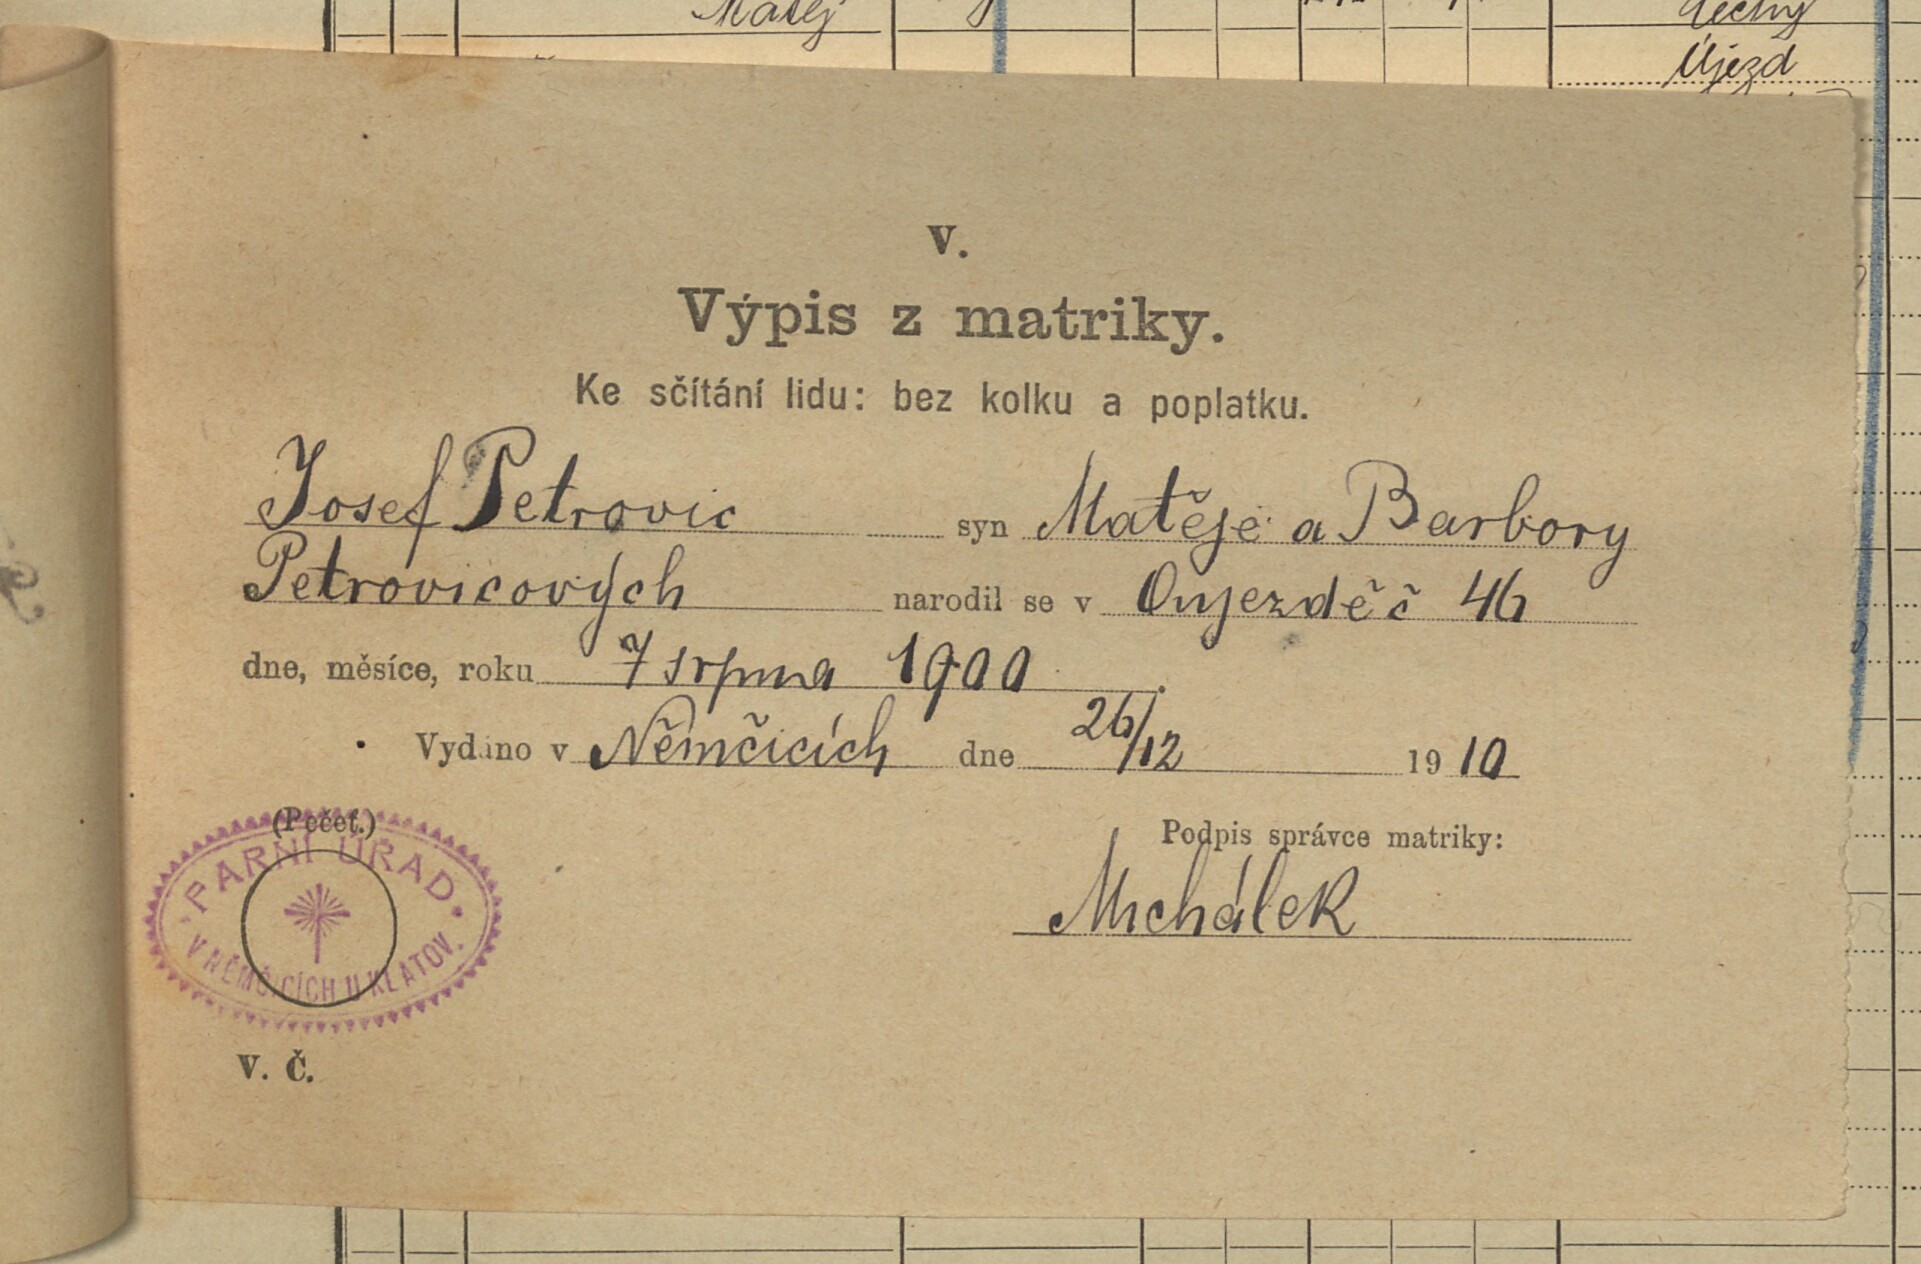 Matěj
Čechy
Újezd
V.
Výpis z matriky.
Ke sčítání lidu: bez kolku a poplatku.
Josef Petrovic syn Matěje a Barbory
Petrovicových narodil se v Oujezdě č 46
dne, měsíce, roku 7 srpna 1900.
Vydáno v Němčicích dne 26/12 1910
(Pečeť.)
Podpis správce matriky:
FARNÍ ÚŘAD
V NĚMČICÍCH U KLATOV.
Michálek
V. Č.